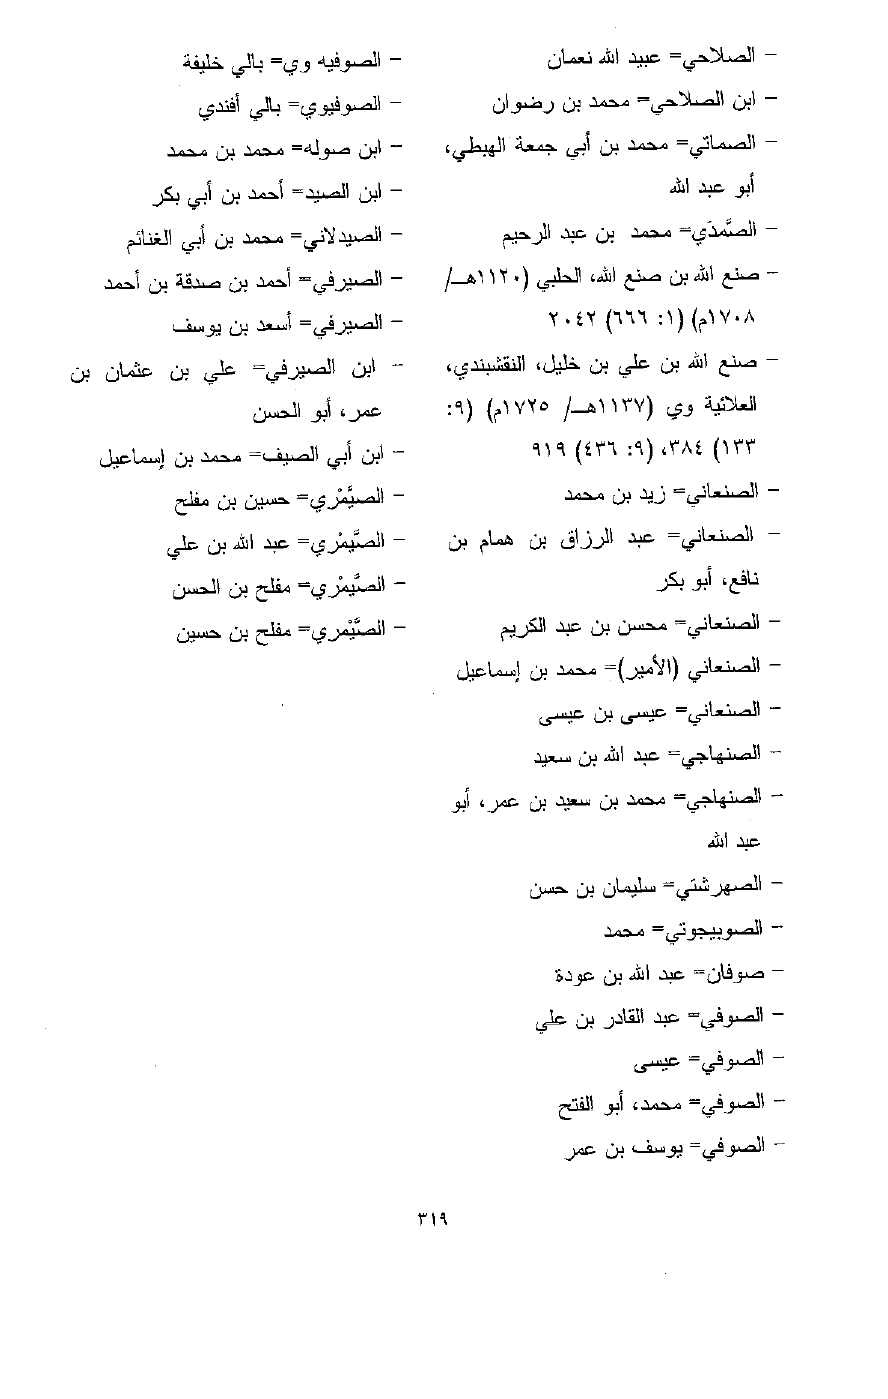 – الصلاحي= عبيد الله نعمان
– ابن الصلاحي= محمد بن رضوان
– الصماتي= محمد بن أبي جمعة الهبطي،
أبو عبد الله
– الصَّمَدّي= محمد بن عبد الرحيم
– صنع الله بن صنع الله، الحلبي (١١٢٠هـ/
١٧٠٨م) (١: ٦٦٦) ٢٠٤٢
– صنع الله بن علي بن خليل، النقشبندي،
العلائية وي (١١٣٧هـ/ ١٧٢٥م) (٩:
١٣٣) ٣٨٤، (٩: ٤٣٦) ٩١٩
– الصنعاني= زيد بن محمد
– الصنعاني= عبد الرزاق بن همام بن
نافع، أبو بكر
– الصنعاني= محسن بن عبد الكريم
– الصنعاني (الأمير)= محمد بن إسماعيل
– الصنعاني= عيسى بن عيسى
– الصنهاجي= عبد الله بن سعيد
– الصنهاجي= محمد بن سعيد بن عمر، أبو
عبد الله
– الصهرشتي= سليمان بن حسن
– الصوبيجوتي= محمد
– صوفان= عبد الله بن عودة
– الصوفي= عبد القادر بن علي
– الصوفي= عيسى
– الصوفي= محمد، أبو الفتح
– الصوفي= يوسف بن عمر
– الصوفيه وي= بالي خليفة
– الصوفيوي= بالي أفندي
– ابن صوله= محمد بن محمد
– ابن الصيد= أحمد بن أبي بكر
– الصيدلاني= محمد بن أبي الغنائم
– الصيرفي= أحمد بن صدقة بن أحمد
– الصيرفي= أسعد بن يوسف
– ابن الصيرفي= علي بن عثمان بن
عمر، أبو الحسن
– ابن أبي الصيف= محمد بن إسماعيل
– الصيَّمْري= حسين بن مفلح
– الصَّيْمْري= عبد الله بن علي
– الصَّيْمْري= مفلح بن الحسن
– الصَّيْمْري= مفلح بن حسين
٣١٩